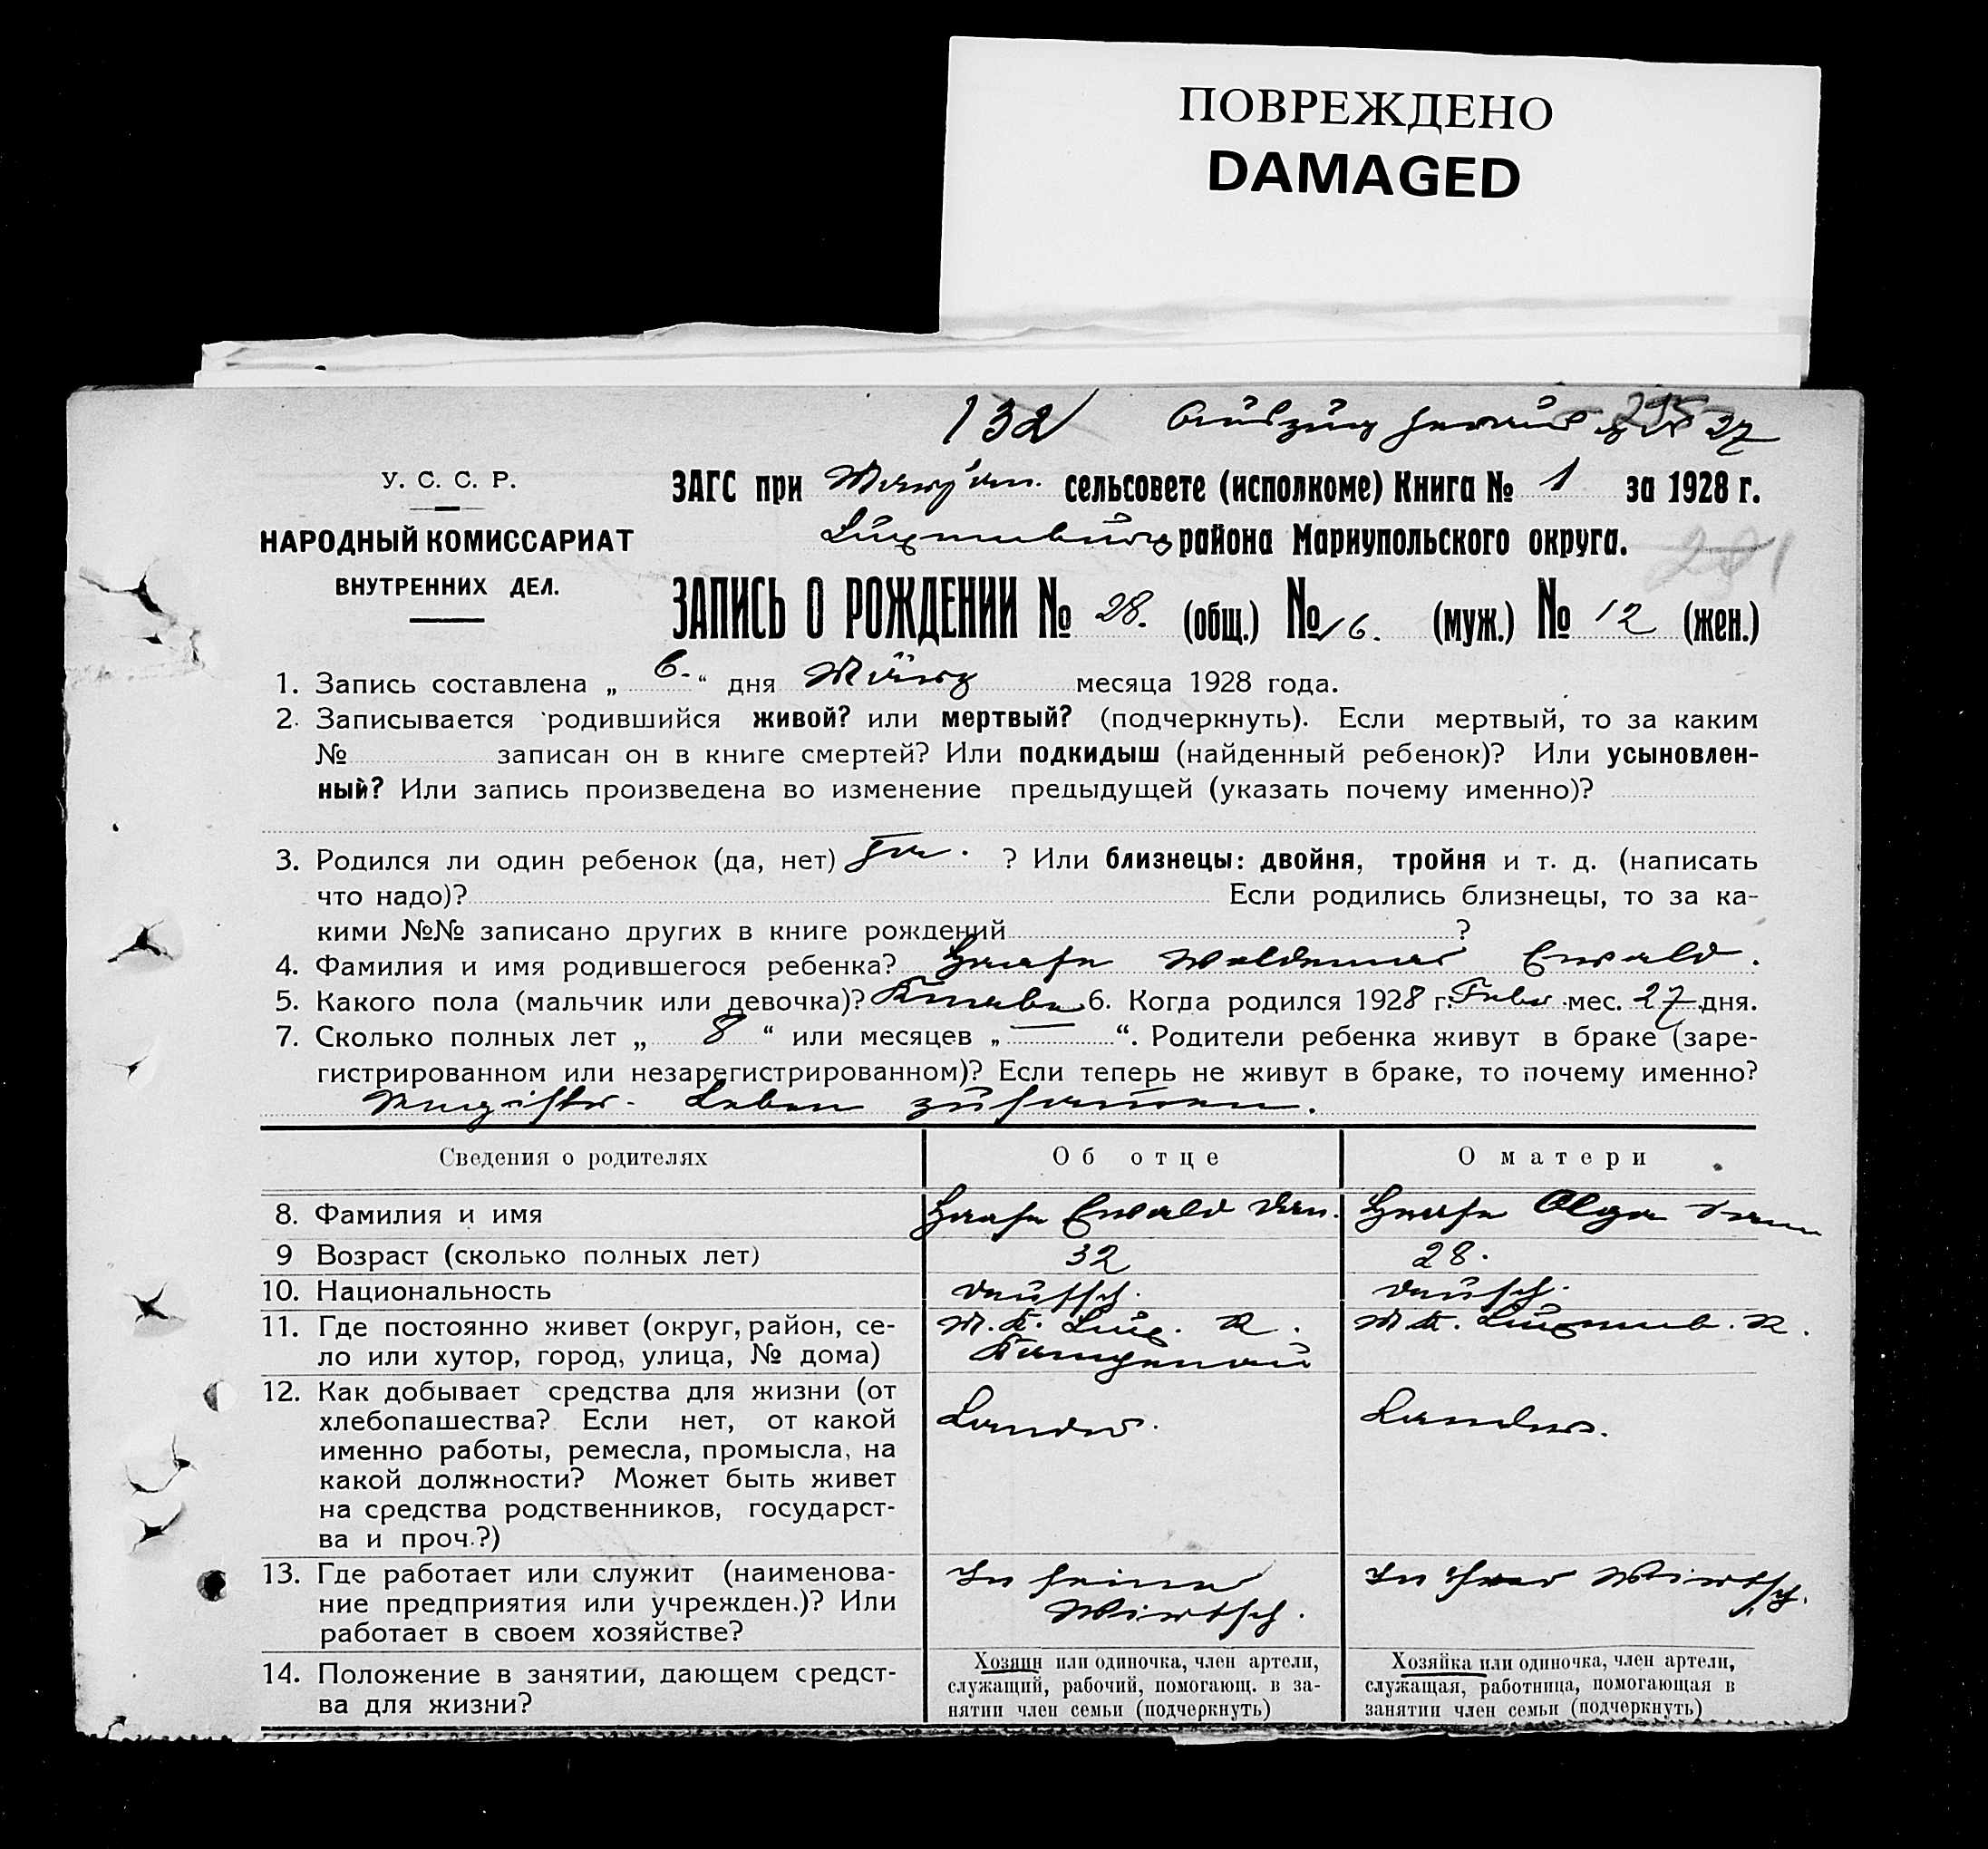 ПОВРЕЖДЕНО
DAMAGED
132 Auszug heraus 27
У. С. С. Р.
НАРОДНЫЙ КОМИССАРИАТ
ВНУТРЕННИХ ДЕЛ.
ЗАГС при сельсовете (исполкоме) Книга № 1 за 1928 г.
Luxemburg района Мариупольского округа.
ЗАПИСЬ О РОЖДЕНИИ № 28. (общ.) № 16. (муж.) № 12 (жен.)
1. Запись составлена „ 6. “ дня März месяца 1928 года.
2. Записывается родившийся живой? или мертвый? (подчеркнуть). Если мертвый, то за каким
№ записан он в книге смертей? Или подкидыш (найденный ребенок)? Или усыновлен-
ный? Или запись произведена во изменение предыдущей (указать почему именно)?
3. Родился ли один ребенок (да, нет) Ja. ? Или близнецы: двойня, тройня и т. д. (написать
что надо)? Если родились близнецы, то за ка-
кими №№ записано других в книге рождений ?
4. Фамилия и имя родившегося ребенка? Haase Woldemar Ewald.
5. Какого пола (мальчик или девочка)? Knabe 6. Когда родился 1928 г. Febr. мес. 27 дня.
7. Сколько полных лет „ 8 “ или месяцев „ — “. Родители ребенка живут в браке (заре-
гистрированном или незарегистрированном)? Если теперь не живут в браке, то почему именно?
Leben zusammen.
Сведения о родителях Об отце О матери
8. Фамилия и имя Haase Ewald Haase Olga
9 Возраст (сколько полных лет) 32 28.
10. Национальность deutsch. deutsch.
11. Где постоянно живет (округ, район, се- M. K. Lux. R. M. K. Luxemb. R.
ло или хутор, город, улица, № дома)
12. Как добывает средства для жизни (от
хлебопашества? Если нет, от какой Landw. Landw.
именно работы, ремесла, промысла, на
какой должности? Может быть живет
на средства родственников, государст-
ва и проч.?)
13. Где работает или служит (наименова- In seiner In ihrer Wirtsch.
ние предприятия или учрежден.)? Или Wirtsch.
работает в своем хозяйстве?
14. Положение в занятии, дающем средст-
ва для жизни?
Хозяин или одиночка, член артели,
служащий, рабочий, помогающ. в за-
нятии член семьи (подчеркнуть)
Хозяйка или одиночка, член артели,
служащая, работница, помогающая в
занятии член семьи (подчеркнуть)